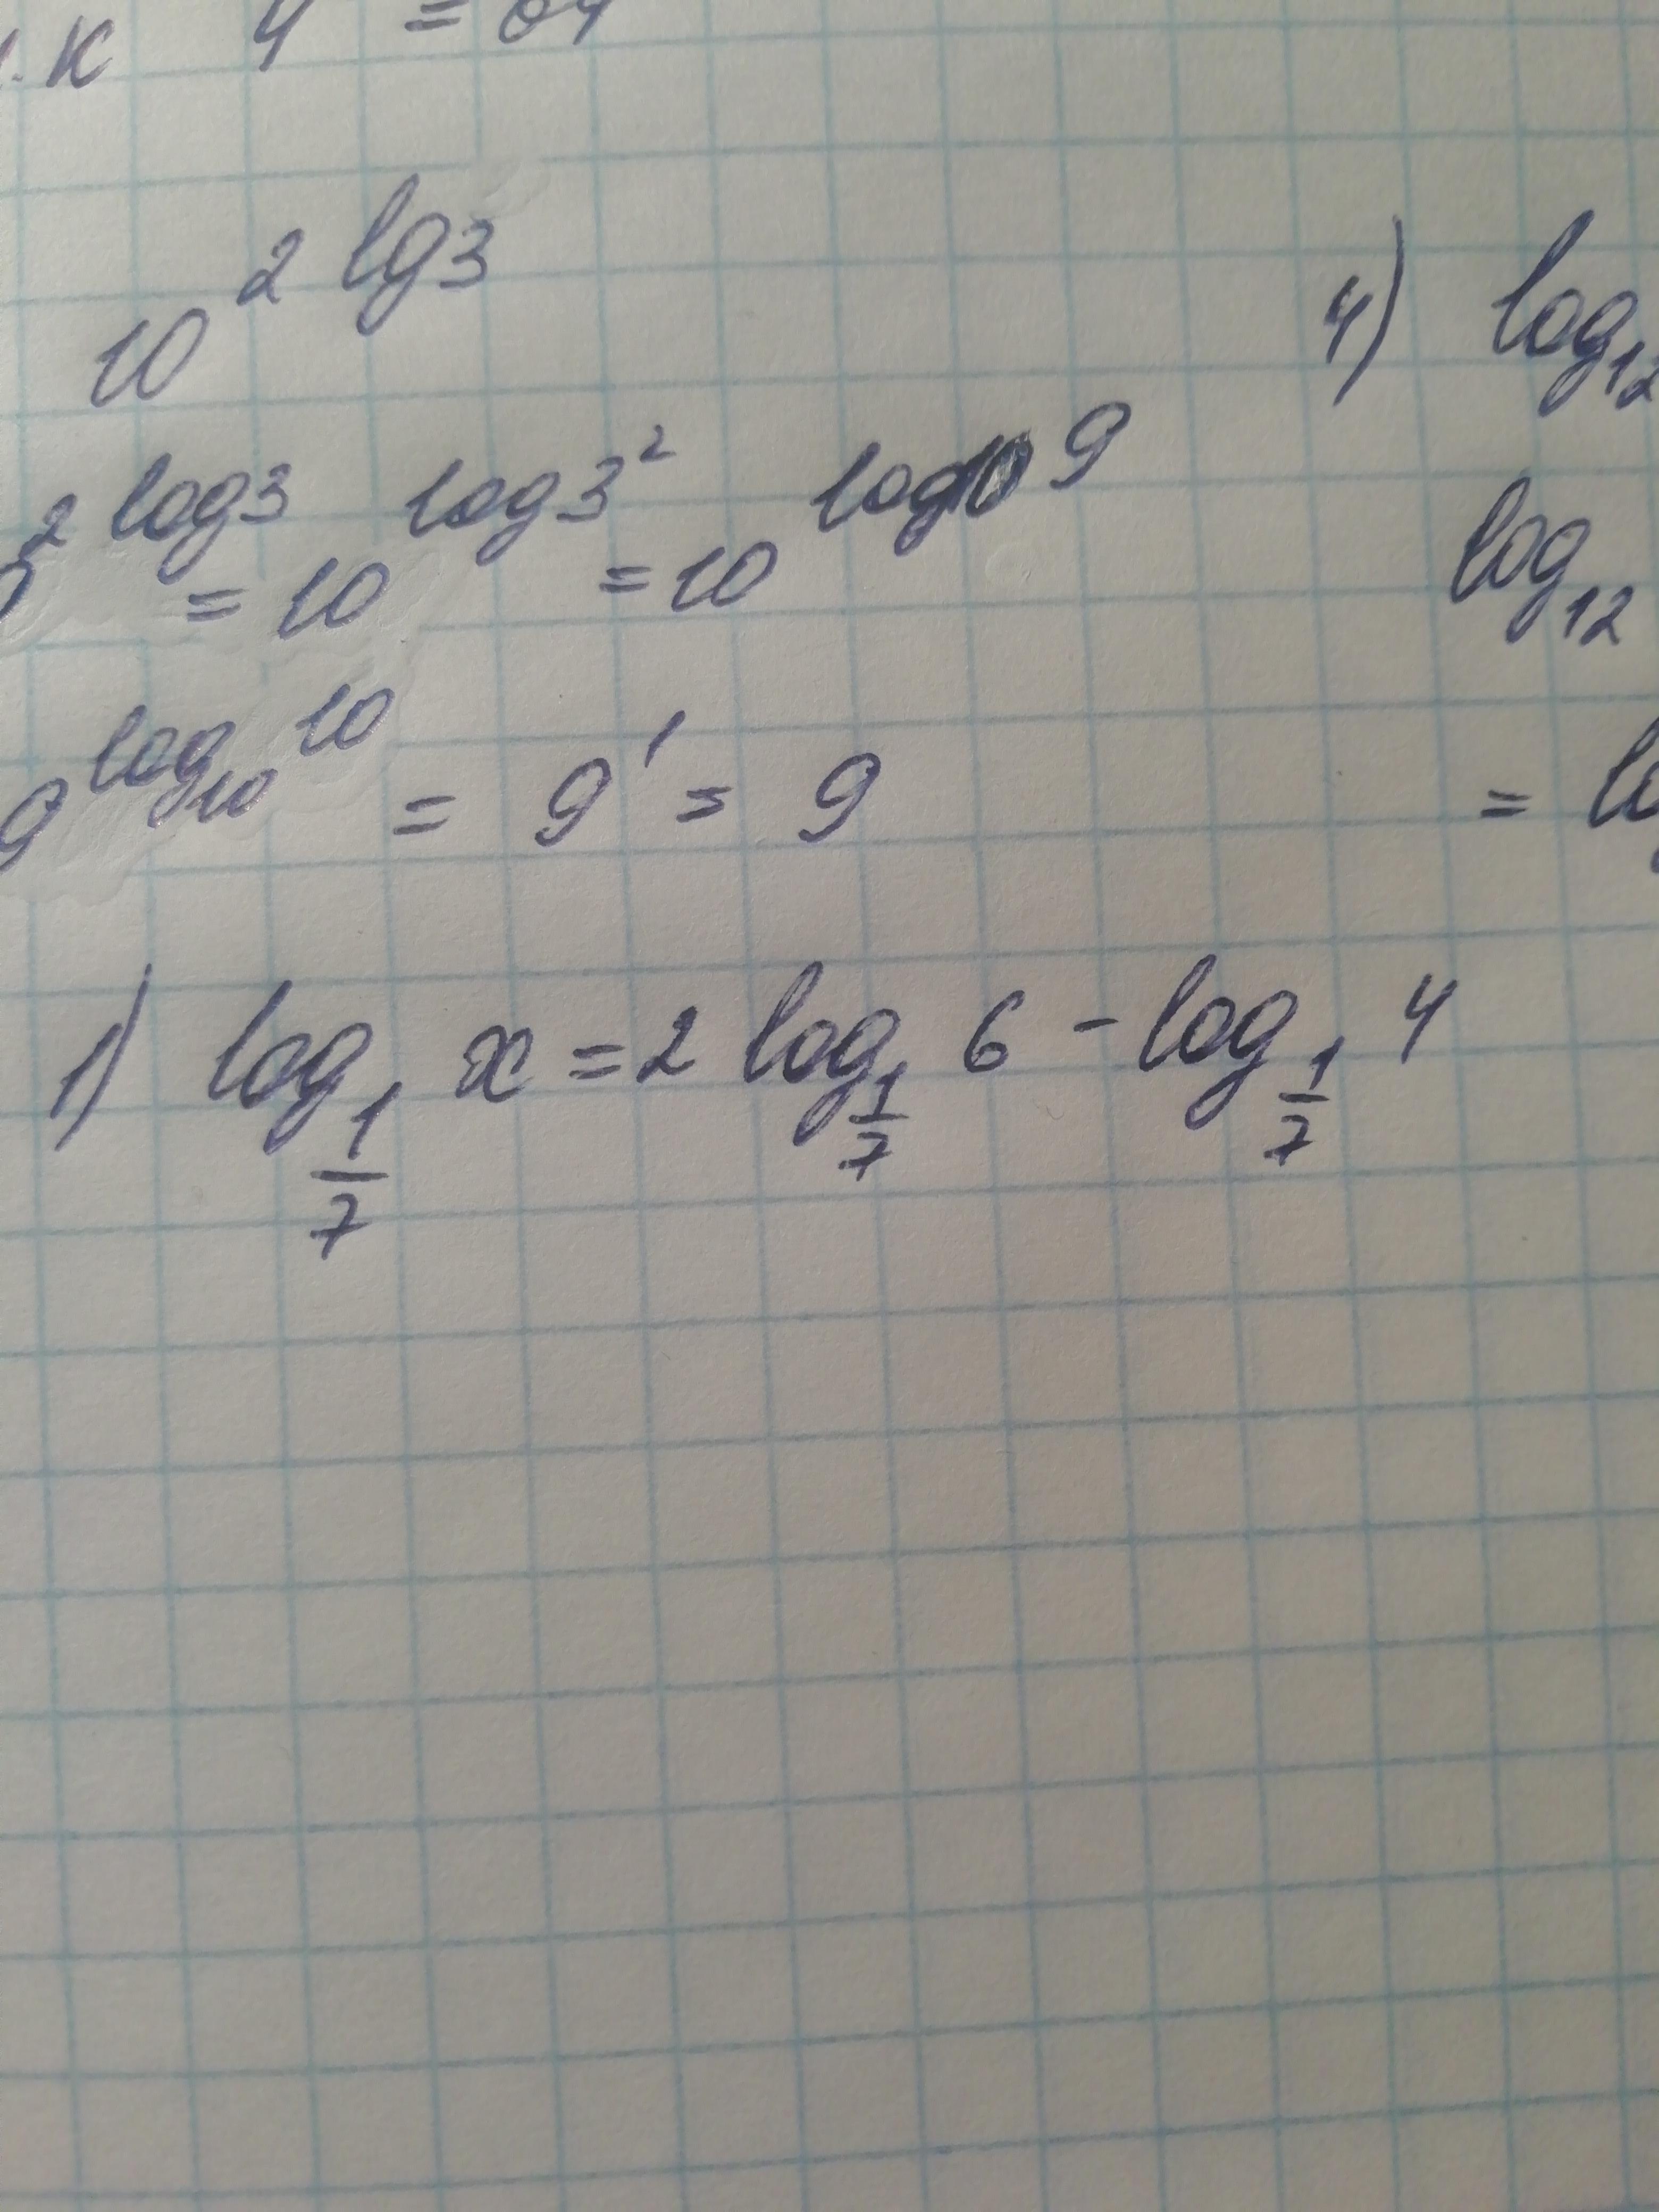 т.к 4 = 64
10^{2 lg3} 4) log_{12}
0^{2 log3} = 10^{log3^2} = 10^{log_{10} 9} log_{12}
9^{log_{10} 10} = 9^1 = 9 = lo
1) log_{\frac{1}{7}} x = 2 log_{\frac{1}{7}} 6 - log_{\frac{1}{7}} 4